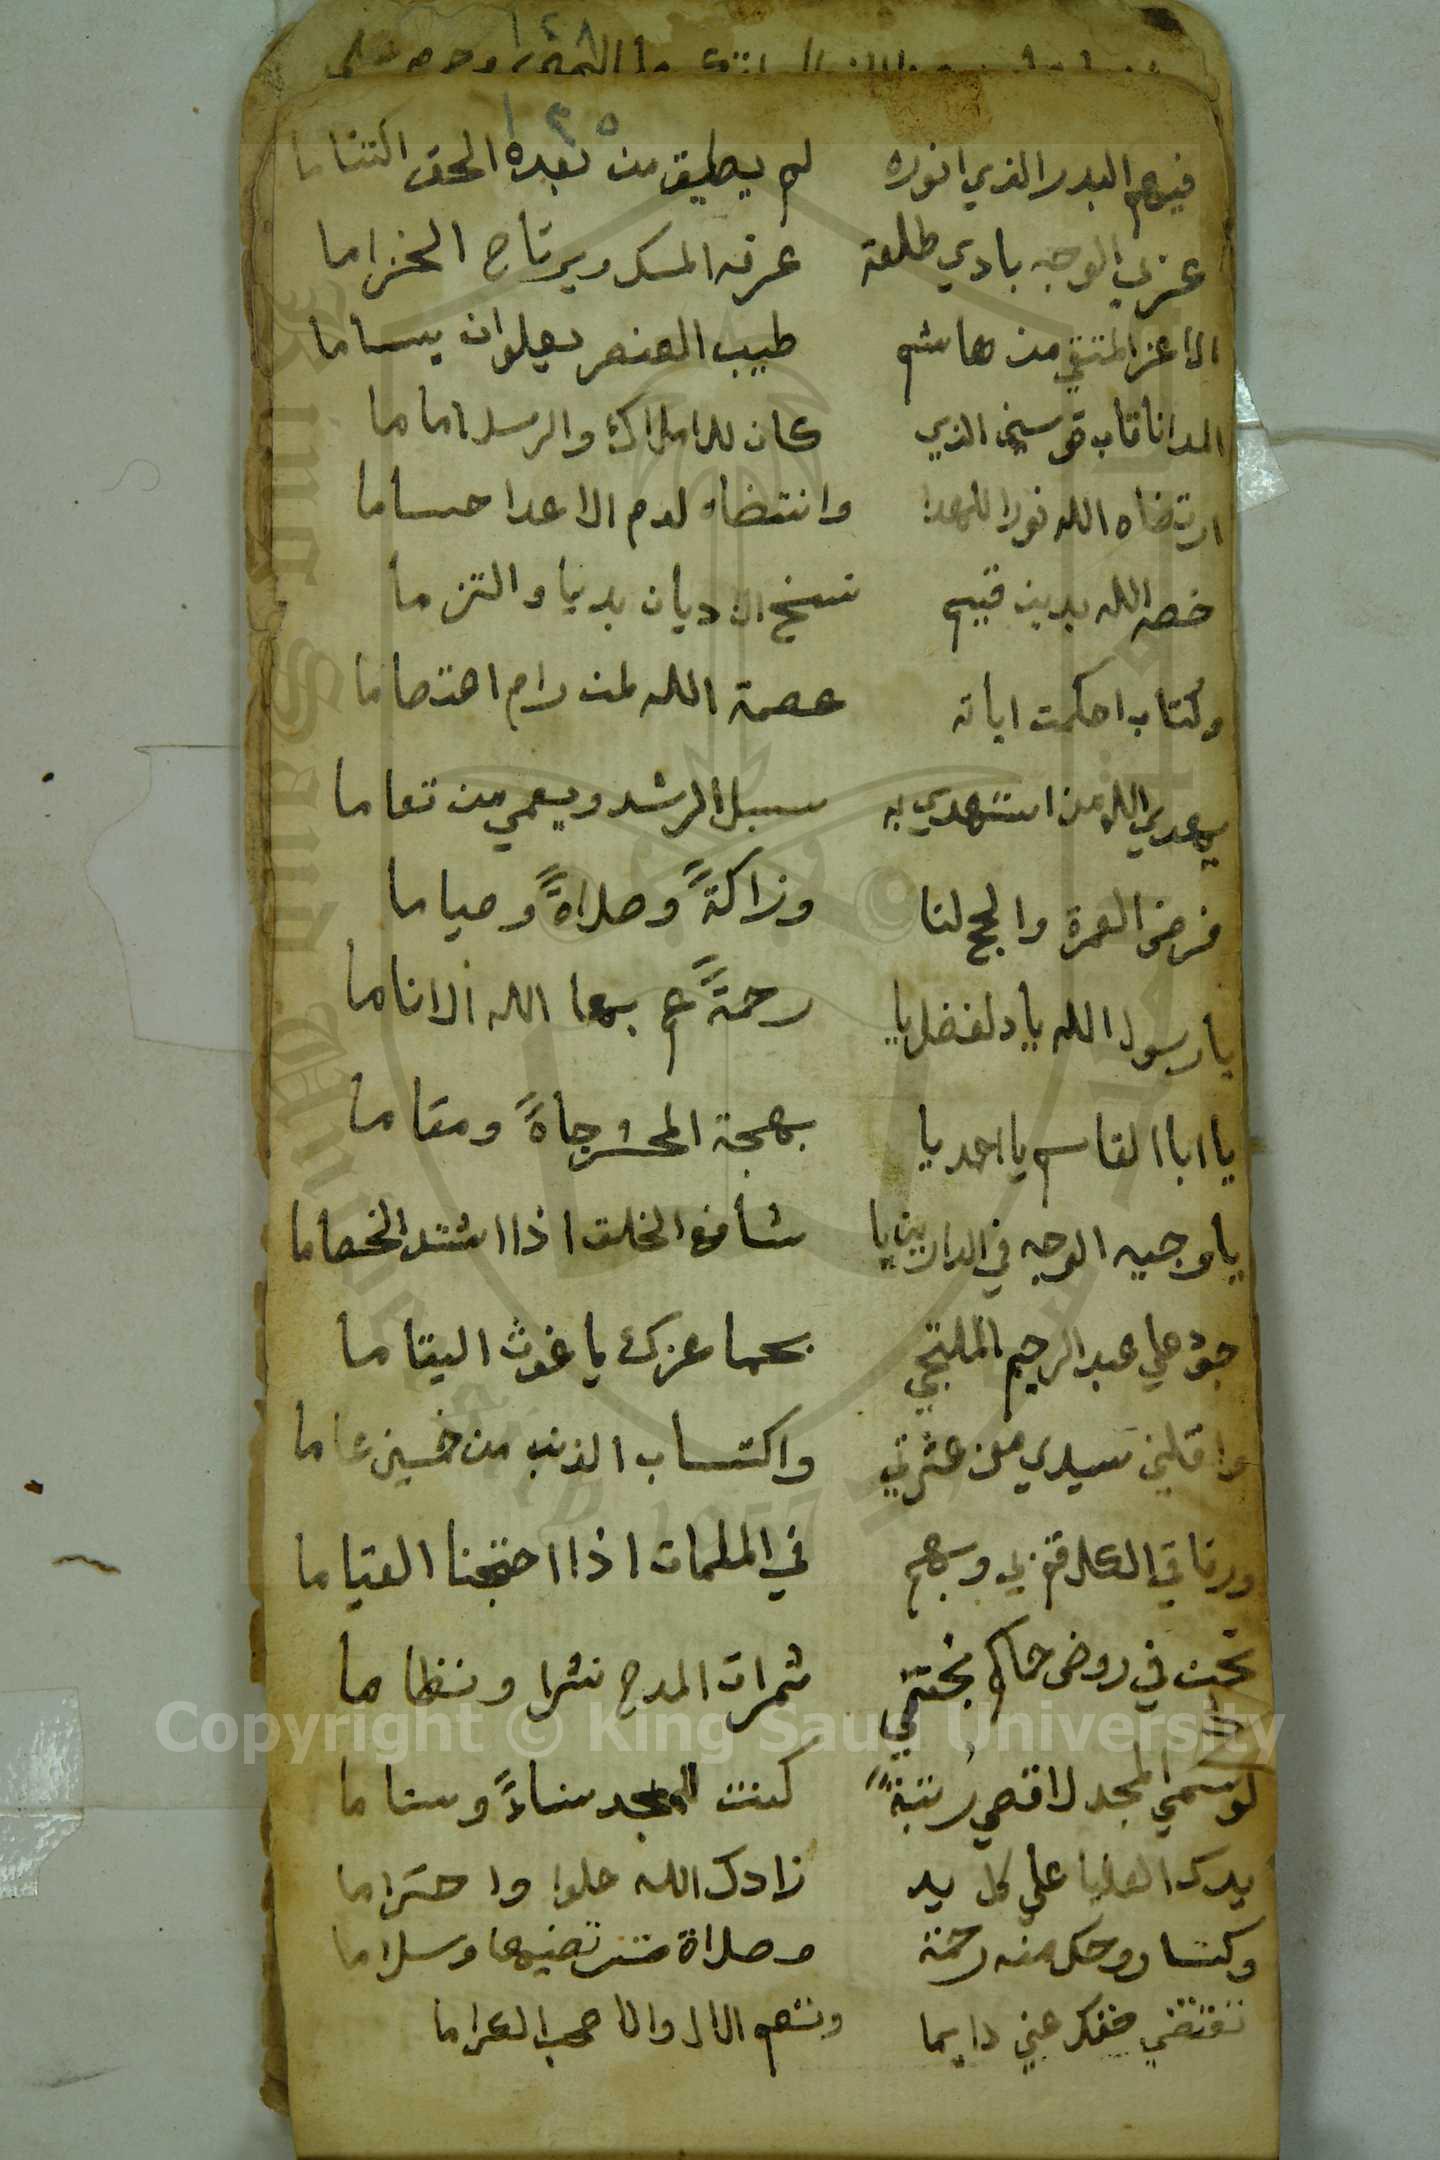 ١٤٨
١٣٥
فيهم البدر الذي انوره لم يطيق من بعده الحق اكتتاما
عزبي الوجه بادي طلعة عرفه المسك ويرتاح الخزاما
الاعز المنتقي من هاشم طيب العنصر يعلوان يساما
المدانا قاب قوسين الذي كان للاملاك والرسل اماما
ارتضاه الله نورا للهدا وانتضاه لدم الاعدا حساما
خصه الله بدين قيم نسخ الاديان بديا والتزما
وكتاب احكمت اياته عصمة الله لمن رام اعتصاما
يهدي الله من استهدي به سبل الرشد ويعمي من تعاما
فرض العمرة والحج لنا وزاكةً وصلاةً وصياما
يا رسول الله يا دلفضل يا رحمةً عم بها الله الاناما
يا ابا القاسم يا احمد يا بهجة المحشر جاةً ومقاما
يا وجيه الوجه في الدارين يا شافع الخلق اذا اشتد الخصاما
جود علي عبد الرحيم الملتجي بحما عزك يا غوث اليتاما
واقلني سيدي من عثرتي واكتساب الذنب من خمسين عاما
ورفاقي الكل قم بي وبهم في الملمات اذا احتجنا القياما
نحن في روض حماكم نجتني ثمرات المدح نثرا ونظاما
لو سمي المجد لاقصي رتبةً كنت المجد سناءً وسناما
يدك العليا علي كل يد زادك الله علوا واحتراما
وكسا روحك منه رحمة وصلاة مترتضيها وسلاما
تقتضي حقك عني دايما وتعم الال والاصحب الكراما
Copyright © King Saud University